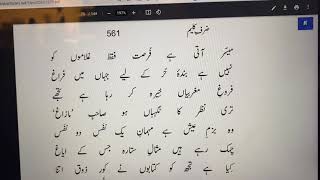 ضرب کلیم
561
میسر آتی ہے فرصت فقط غلاموں کو
نہیں ہے بندۂ حر کے لیے جہاں میں فراغ
فروغ مغربیاں خیرہ کر رہا ہے تجھے
تری نظر کا نگہباں ہو صاحب 'مازاغ'
وہ بزم عیش ہے مہمان یک نفس دو نفس
چمک رہے ہیں مثال ستارہ جس کے ایاغ
کیا ہے تجھ کو کتابوں نے کور ذوق اتنا